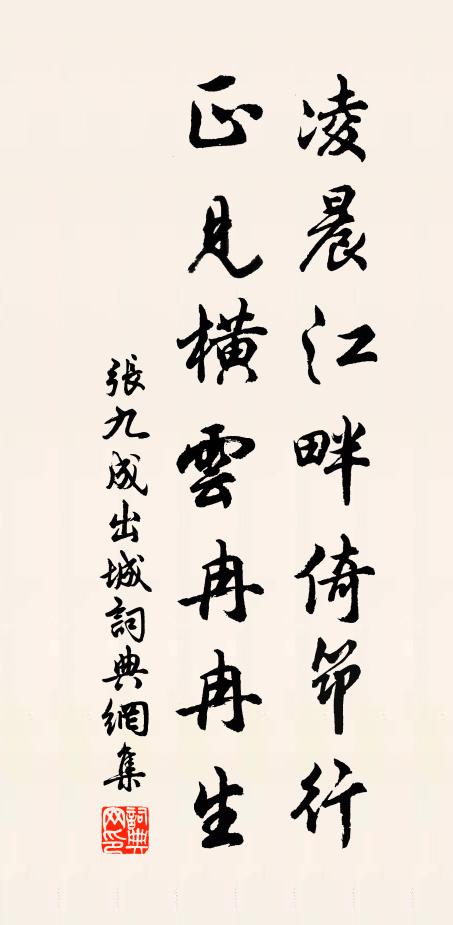 凌晨江畔倚筇行
正見橫雲冉冉生
張九成出城詞典網集
詞典網印